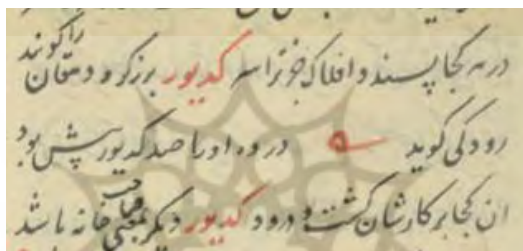 در هر کجا پسند و افلاک خرتراسه کدیور برزکر و دهقان راکویند
رودکی کوید در ده او را صد کدیور پیش بود
ان کجا بر کارشان کشت و درود کدیور دیکر بمعنی صاحب خانه باشد